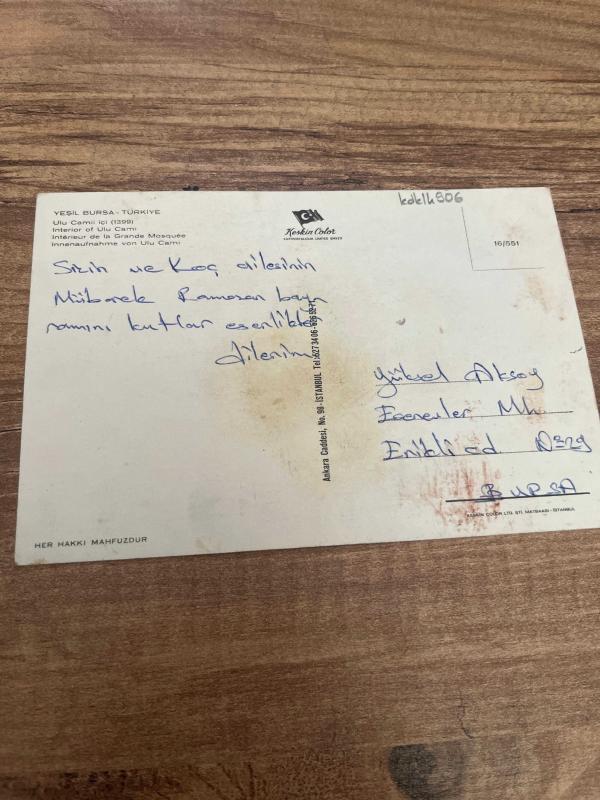 YEŞİL BURSA - TÜRKİYE
Ulu Camii içi (1399)
Interior of Ulu Cami
Intérieur de la Grande Mosquée
Innenaufnahme von Ulu Cami
Keskin Color
kdklh806
16/551
Sizin ve Koç ailesinin
Mübarek Ramazan bay
ramını kutlar esenlikler
dilerim
Ankara Caddesi, No. 98 - İSTANBUL Tel:
Yüksel Aksoy
Esenevler Mh.
Erikli cd
BURSA
KESKİN COLOR LTD. ŞTİ. MATBAASI - İSTANBUL
HER HAKKI MAHFUZDUR